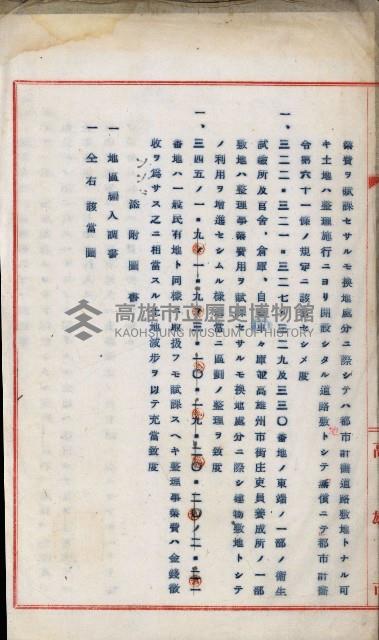 業費ヲ賦課セサルモ換地處分ニ際シテハ都市計畫道路敷地トナル可
キ土地ハ整理施行ニヨリ開設シタル道路敷トシテ無償ニテ都市計畫
令第六十一條ノ規定ニ該當セシメ度
一、三二二・三二一・三二七・三二九及三三〇番地ノ東端ノ一部ノ衛生
試驗所及官舍、倉庫、自動車々庫並高雄州市街庄吏員養成所ノ一部
敷地ハ整理事業費用ヲ賦課セサルモ換地處分ニ際シ建物敷地トシテ
ノ利用ヲ增進セシムル樣適當ニ區劃ノ整理ヲ致度
一、三四五ノ一・九ノ一・九ノ三・一〇・一九・二〇・二〇ノ二・二一
番地ハ一般民有地ト同樣ニ取扱フモ賦課スヘキ整理事業費ハ金錢徵
收ヲ爲サス之ニ相當スル土地減步ヲ以テ充當致度
添附圖書
一 地區編入調書
一 仝右該當圖
高雄市立歷史博物館
KAOHSIUNG MUSEUM OF HISTORY
高雄市